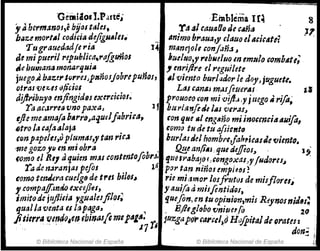 Gemidos I. Parte,
y à hermanos, è bijos tales,
baze mortal codicia desiguales.
Tu gra auedad se ria 14
de mi pueril republica, rasguños
de humana monarquia
juego à bazer torres, paños sobre puños,
otras vezes oficios
distribuyo en fingidos exercicios.
Ya acarrea vno paxa, 15
este me amasa barro, aquel fabrica,
otro la casa alaja
con papeles, ò plumas, y tan rica
me gozo yo en mi obra
como el Rey à quien mas contento sobra.
Ya de naranjas pesos 16
como tendera cuelgo de tres bilos,
y compassando excesses,
imito de justicia yguales filos;
qual la venta es la paga,
si tierra vendo, en chinas se me paga.
17 Ya
Emblema II. 8
Ya al cauallo de caña 17
animo brauo, y clauo el acicate
manejole con saña,
buelvo, y rebuelvo en emulo combate;
y enristre el reguilete
al viento burlador le doy, juguete.
Las canas mas seueras 18
prouoco con mi vista, y juego à risa,
burlanse de las veras,
con que al engaño mi inocencia auisa,
como tu de tu assiento
burlas del hombre, fabricas de viento.
Que ansias que desseos, 19
que trabajos, congoxas, y sudores,
por tan niños empleos?
rie mi amor los frutos de mis flores,
y auisa à mis sentidos,
que son, en tu opinion, mis Reynos nidos.
Este globo vniuerso 20
juzga por carcel, ò Hospital de orates:
don-
© Biblioteca Nacional de España
© Biblioteca Nacional de España